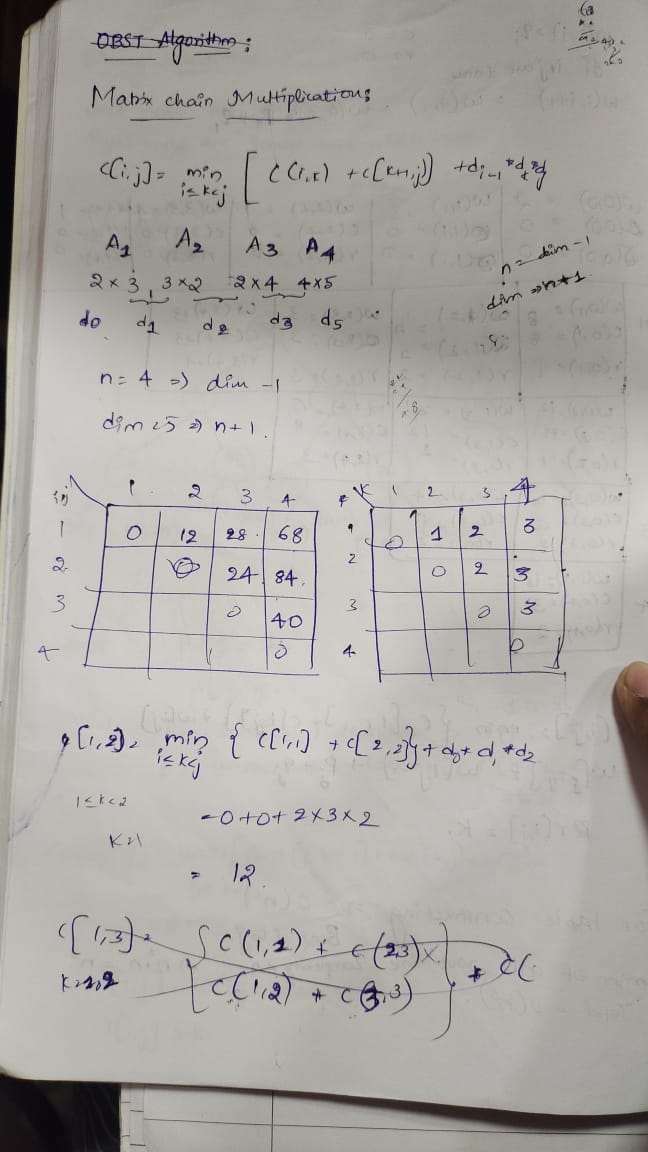 OBST Algorithm:
Matrix chain Multiplication:
C[i,j] = min i≤k<j [ C(i,k) + C[k+1,j] ] + di-1 * dk * dj
A1 A2 A3 A4
2×3, 3×2 2×4 4×5
d0 d1 d2 d3 d5
n = dim -1
dim => n+1.
n = 4 => dim -1
dim = 5 => n+1.
i,j 1 2 3 4
1 0 12 28 68
2 0 24 84
3 0 40
4 0
K 1 2 3 4
1 0 1 2 3
2 0 2 3
3 0 3
4 0
[1,2] = min i≤k<j { C[1,1] + C[2,2] } + d0 * d1 * d2
1≤k<2
= 0+0+ 2×3×2
K=1
= 12.
C[1,3] = { C(1,2) + C(23)
K=1,2 C(1,2) + C(3,3) } + C(